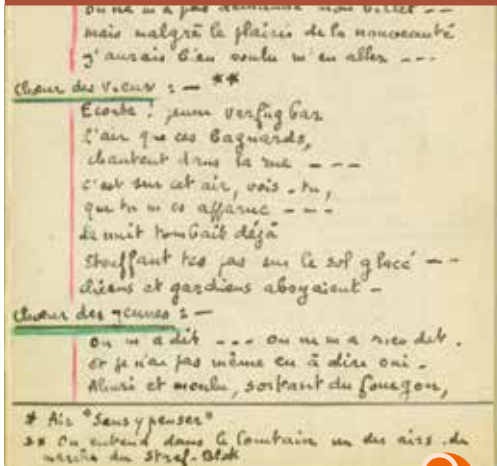 on ne m'a pas demandé mon billet --
mais malgré le plaisir de la nouveauté
j'aurais bien voulu m'en aller ---
Chœur des vieux : — **
Ecoute ! jeune verfügbar
L'air que ces Bagnards,
chantent dans la rue ---
C'est sur cet air, vois-tu,
que tu m es ---
La nuit tombait déjà
Etouffant tes pas sur le sol glacé --
chiens et gardiens aboyaient -
Chœur des jeunes : —
On m'a dit --- on ne m'a rien dit.
Et je n'ai pas même eu à dire oui.
Ahuri et moulu, sortant du fourgon,
* Air "Sans y penser"
** On entend dans le lointain un des airs de
marche du Straf-Blok